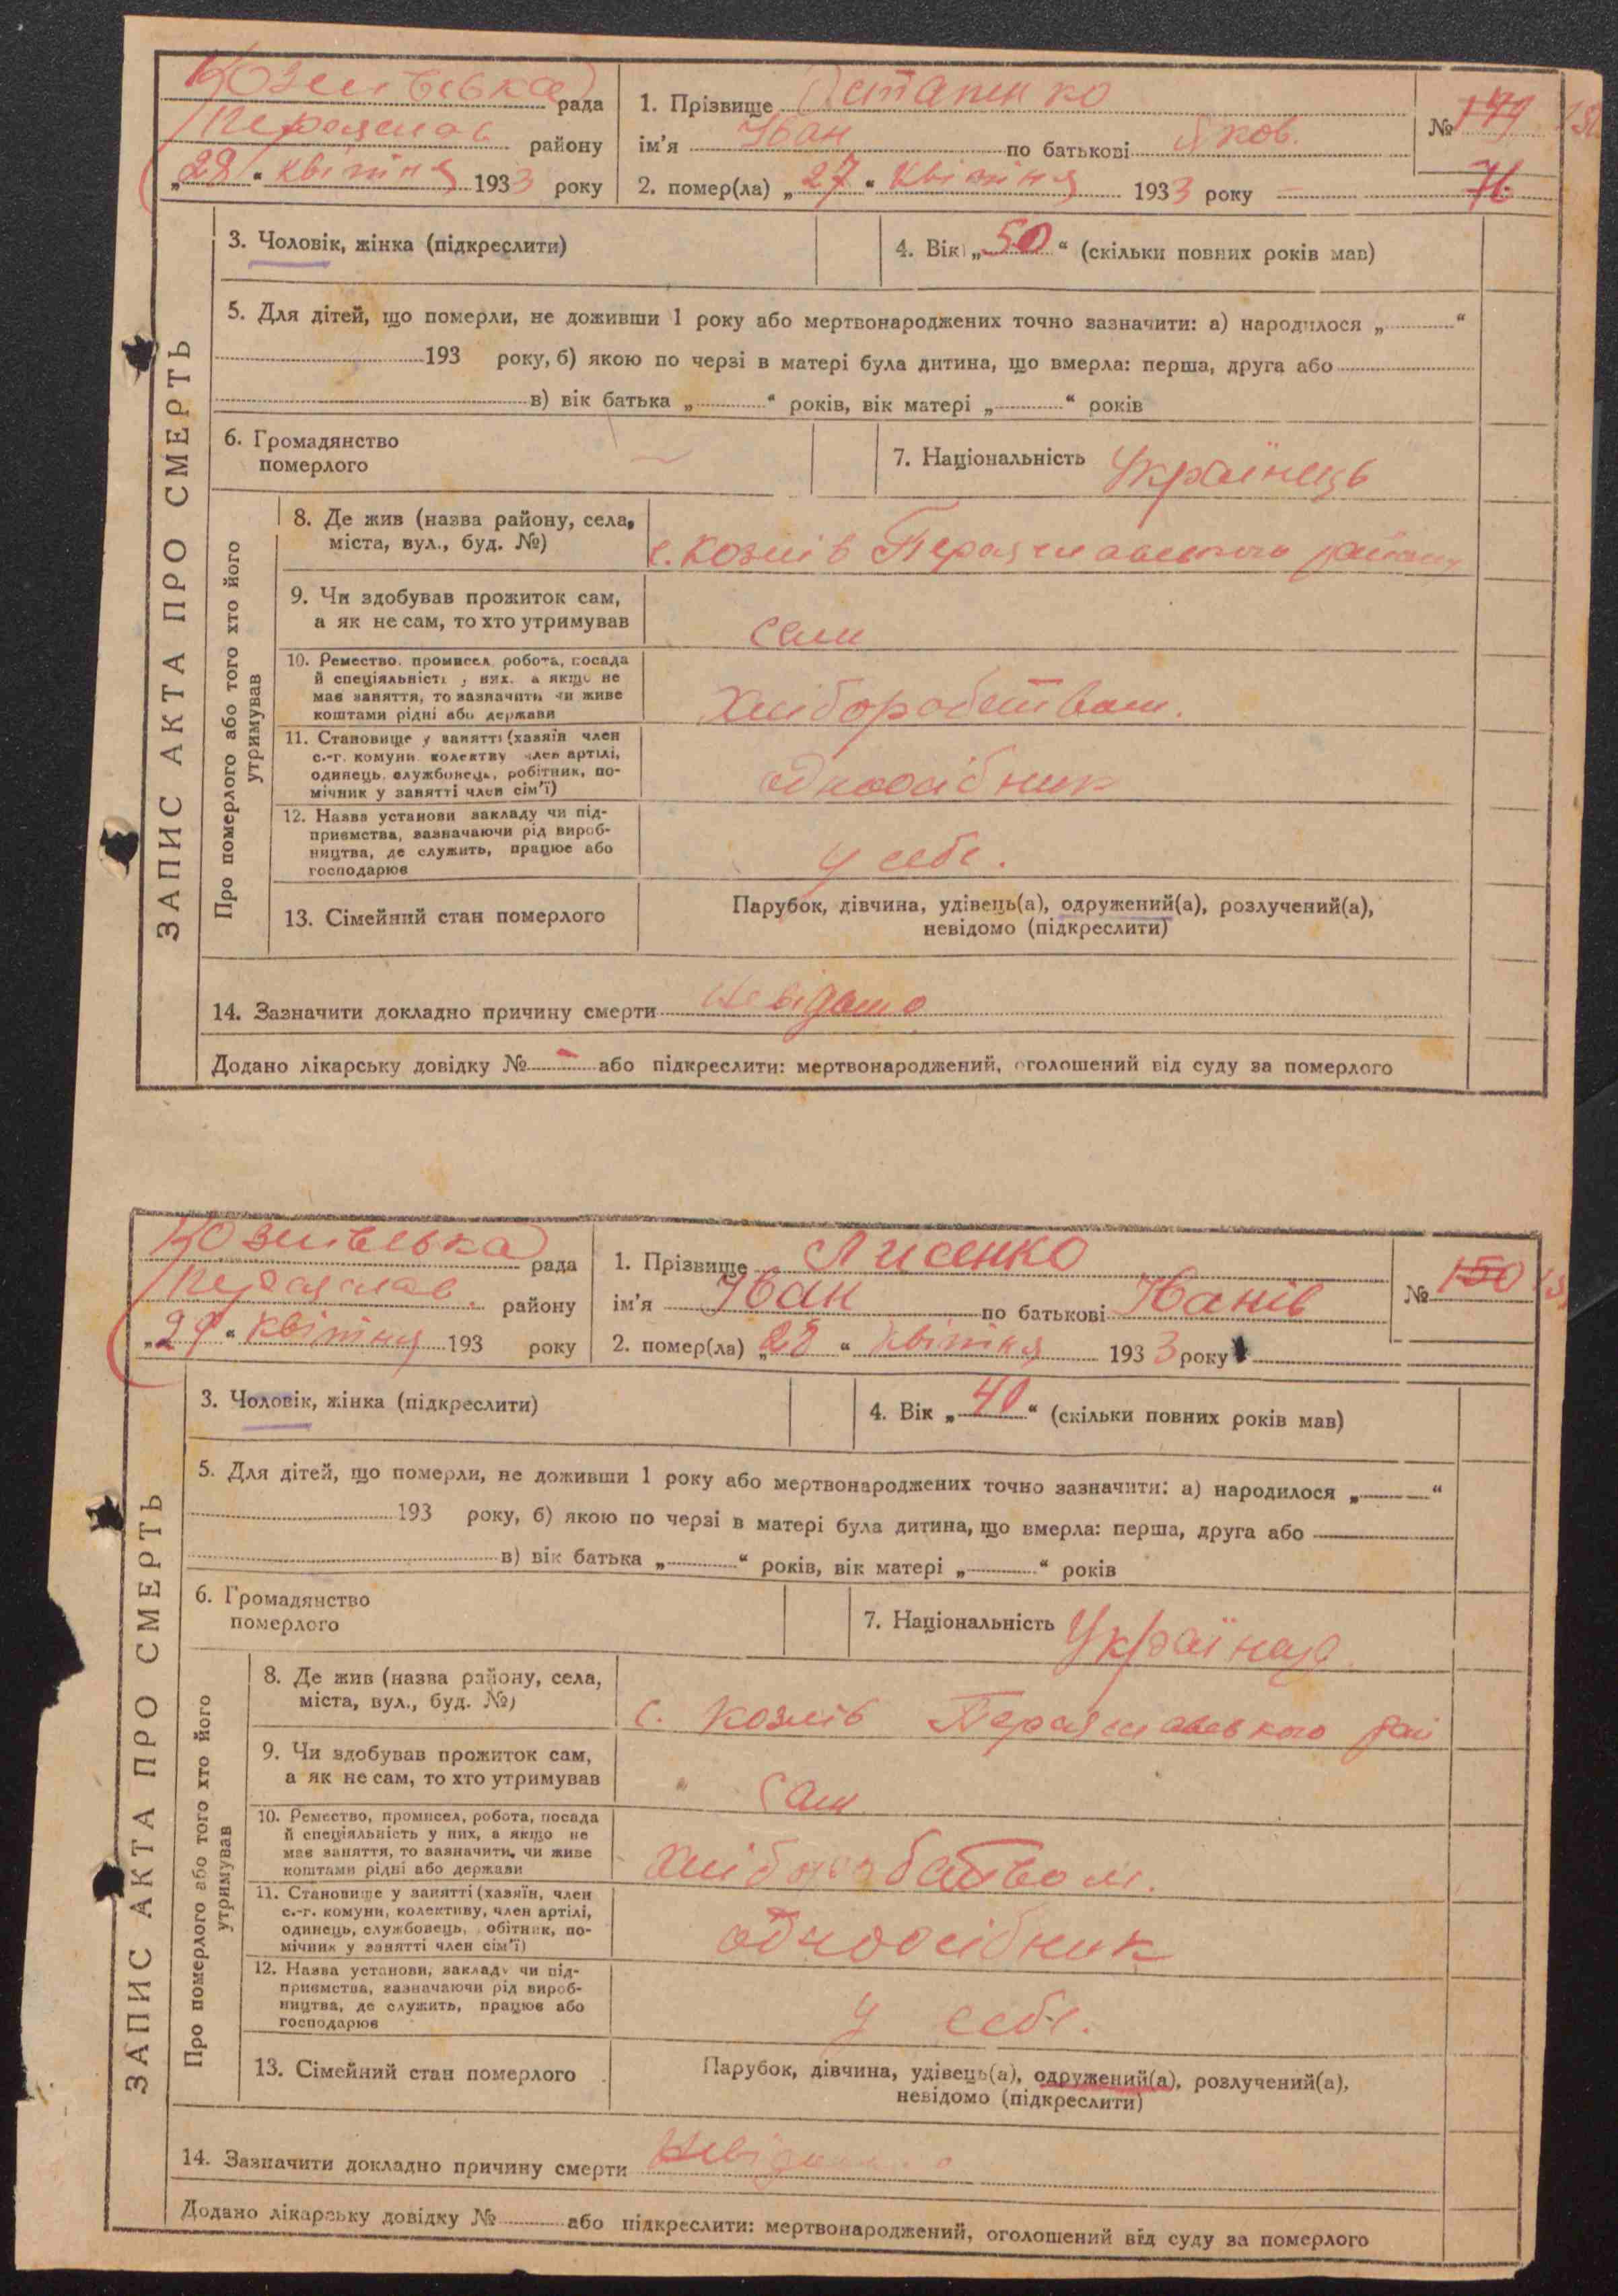 Козлівська рада
Переяслав району
„28“ квітня 1933 року
1. Прізвище Остапенко
ім'я Іван по батькові Яков.
2. помер(ла) „27“ квітня 1933 року
№ 149
76
ЗАПИС АКТА ПРО СМЕРТЬ
3. Чоловік, жінка (підкреслити)
4. Вік „50“ (скільки повних років мав)
5. Для дітей, що померли, не доживши 1 року або мертвонароджених точно зазначити: а) народилося „ “
193 року, б) якою по черзі в матері була дитина, що вмерла: перша, друга або
в) вік батька „ “ років, вік матері „ “ років
6. Громадянство
померлого
7. Національність Українець
Про померлого або того хто його
утримував
8. Де жив (назва району, села,
міста, вул., буд. №)
с. Козлів Переяславського району
9. Чи здобував прожиток сам,
а як не сам, то хто утримував
сам
10. Ремество, промисел, робота, посада
й спеціяльність у них, а якщо не
мав заняття, то зазначити чи живе
коштами рідні або держави
Хліборобством.
11. Становище у занятті (хазяїн член
с.-г. комуни, колективу член артілі,
одинець, службовець, робітник, по-
мічник у занятті член сім'ї)
одноосібник
12. Назва установи закладу чи під-
приємства, зазначаючи рід вироб-
ництва, де служить, працює або
господарює
у себе.
13. Сімейний стан померлого
Парубок, дівчина, удівець(а), одружений(а), розлучений(а),
невідомо (підкреслити)
14. Зазначити докладно причину смерти невідомо
Додано лікарську довідку № - або підкреслити: мертвонароджений, оголошений від суду за померлого
Козлівська рада
Переяслав. району
„29“ квітня 193 року
1. Прізвище Лисенко
ім'я Іван по батькові Іванів
2. помер(ла) „28“ квітня 1933 року
№ 150
ЗАПИС АКТА ПРО СМЕРТЬ
3. Чоловік, жінка (підкреслити)
4. Вік „40“ (скільки повних років мав)
5. Для дітей, що померли, не доживши 1 року або мертвонароджених точно зазначити: а) народилося „ “
193 року, б) якою по черзі в матері була дитина, що вмерла: перша, друга або
в) вік батька „ “ років, вік матері „ “ років
6. Громадянство
померлого
7. Національність
Про померлого або того хто його
утримував
8. Де жив (назва району, села,
міста, вул., буд. №)
с. Козлів Переяславського рай
9. Чи здобував прожиток сам,
а як не сам, то хто утримував
сам
10. Ремество, промисел, робота, посада
й спеціяльність у них, а якщо не
мав заняття, то зазначити, чи живе
коштами рідні або держави
хліборобством.
11. Становище у занятті (хазяїн, член
с.-г. комуни, колективу, член артілі,
одинець, службовець, робітник, по-
мічник у занятті член сім'ї)
одноосібник
12. Назва установи, закладу чи під-
приємства, зазначаючи рід вироб-
ництва, де служить, працює або
господарює
у себе.
13. Сімейний стан померлого
Парубок, дівчина, удівець(а), одружений(а), розлучений(а),
невідомо (підкреслити)
14. Зазначити докладно причину смерти невідомо
Додано лікарську довідку № або підкреслити: мертвонароджений, оголошений від суду за померлого